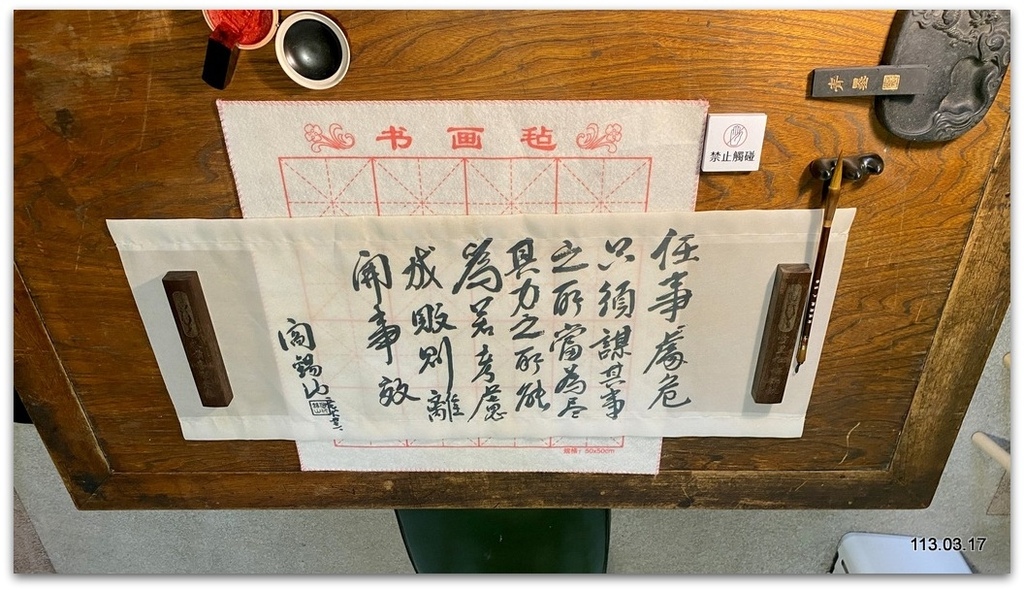 书画毡
青墨
禁止觸碰
任事處危
只須謀其事
之所當為盡
其力之所能
為若考慮
成敗則離
開事效
閻錫山
规格：50x50cm
113.03.17